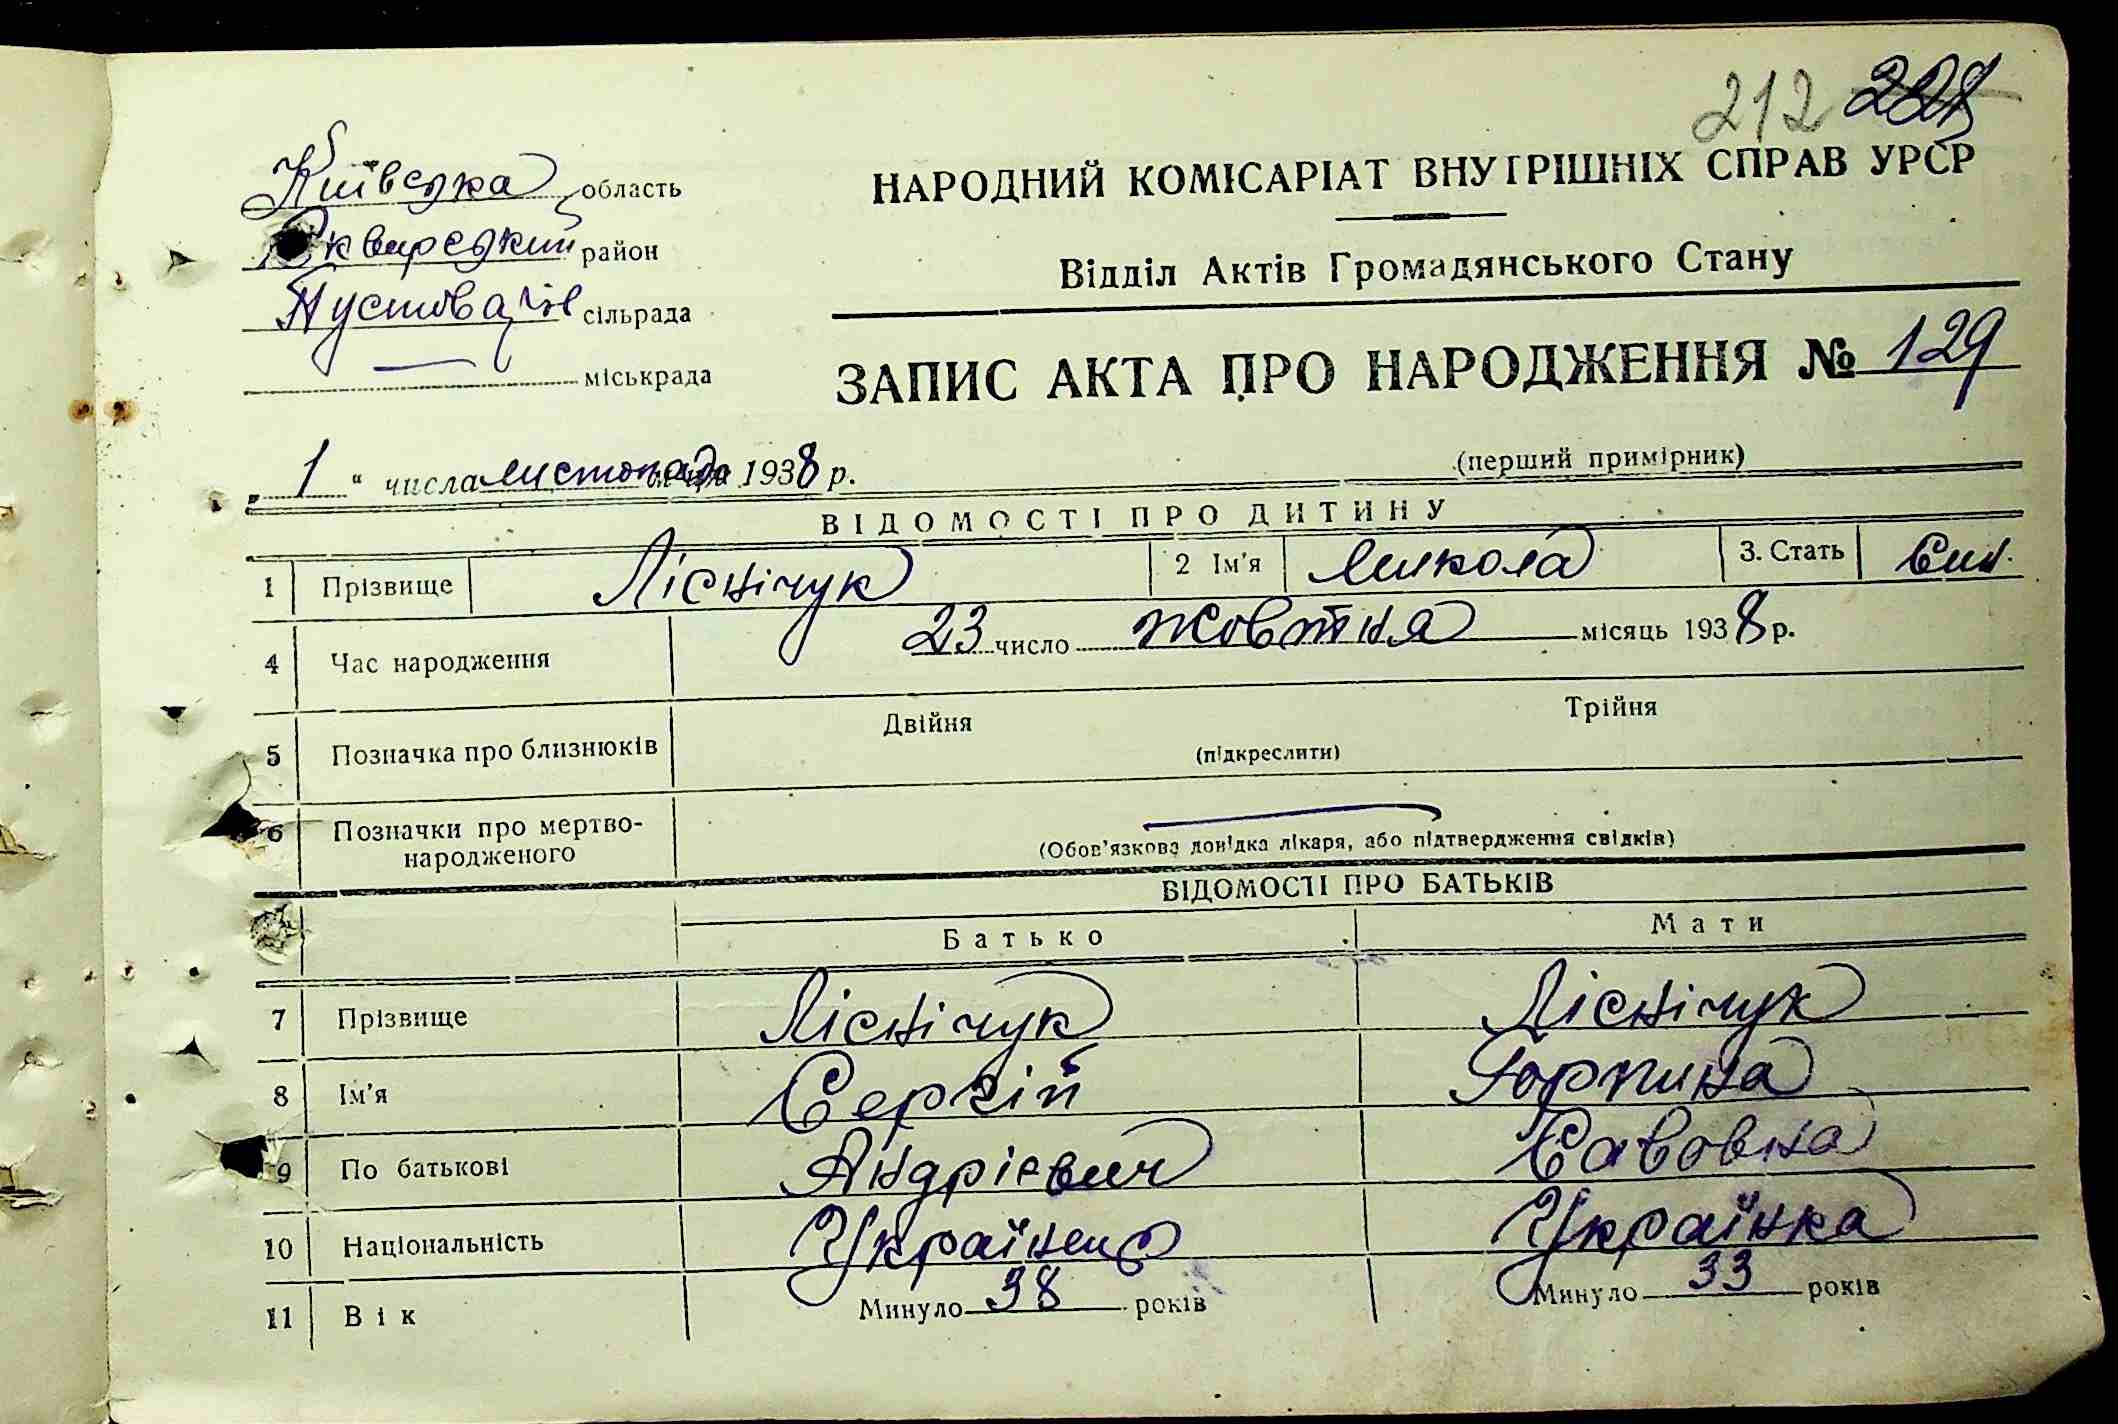 212
Київська область
Сквирський район
Пустоваров сільрада
міськрада
НАРОДНИЙ КОМІСАРІАТ ВНУТРІШНІХ СПРАВ УРСР
Відділ Актів Громадянського Стану
ЗАПИС АКТА ПРО НАРОДЖЕННЯ № 129
(перший примірник)
„ 1 “ числа листопада 1938 р.
ВІДОМОСТІ ПРО ДИТИНУ
1 ПрізвищеЛіснічук 2 Ім'я Микола 3. Стать Син.
4 Час народження 23 число жовтня місяць 1938 р.
5 Позначка про близнюків Двійня Трійня
(підкреслити)
6 Позначки про мертво-
народженого
(Обов'язкова довідка лікаря, або підтвердження свідків)
ВІДОМОСТІ ПРО БАТЬКІВ
Батько Мати
7 ПрізвищеЛіснічук Ліснічук
8 Ім'я Сергій Горпина
9 По батькові Андрієвич Савовна
10 Національність Українець Українка
11 Вік Минуло 38 років Минуло 33 років